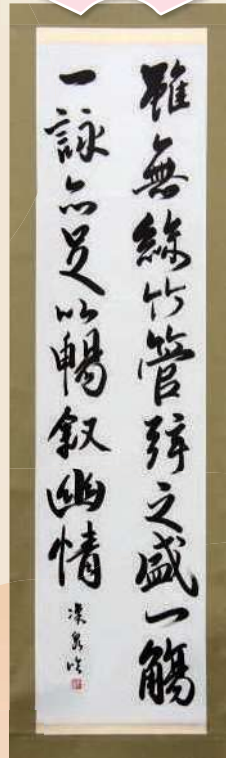 雖無絲竹管弦之盛一觴
一詠亦足以暢叙幽情